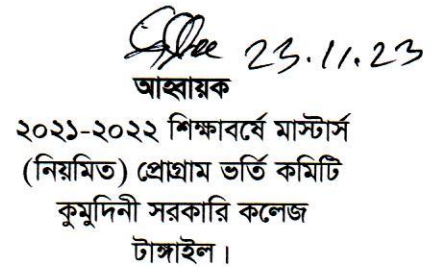 23.11.23
আহ্বায়ক
২০২১-২০২২ শিক্ষাবর্ষে মাস্টার্স
(নিয়মিত) প্রোগ্রাম ভর্তি কমিটি
কুমুদিনী সরকারি কলেজ
টাঙ্গাইল।